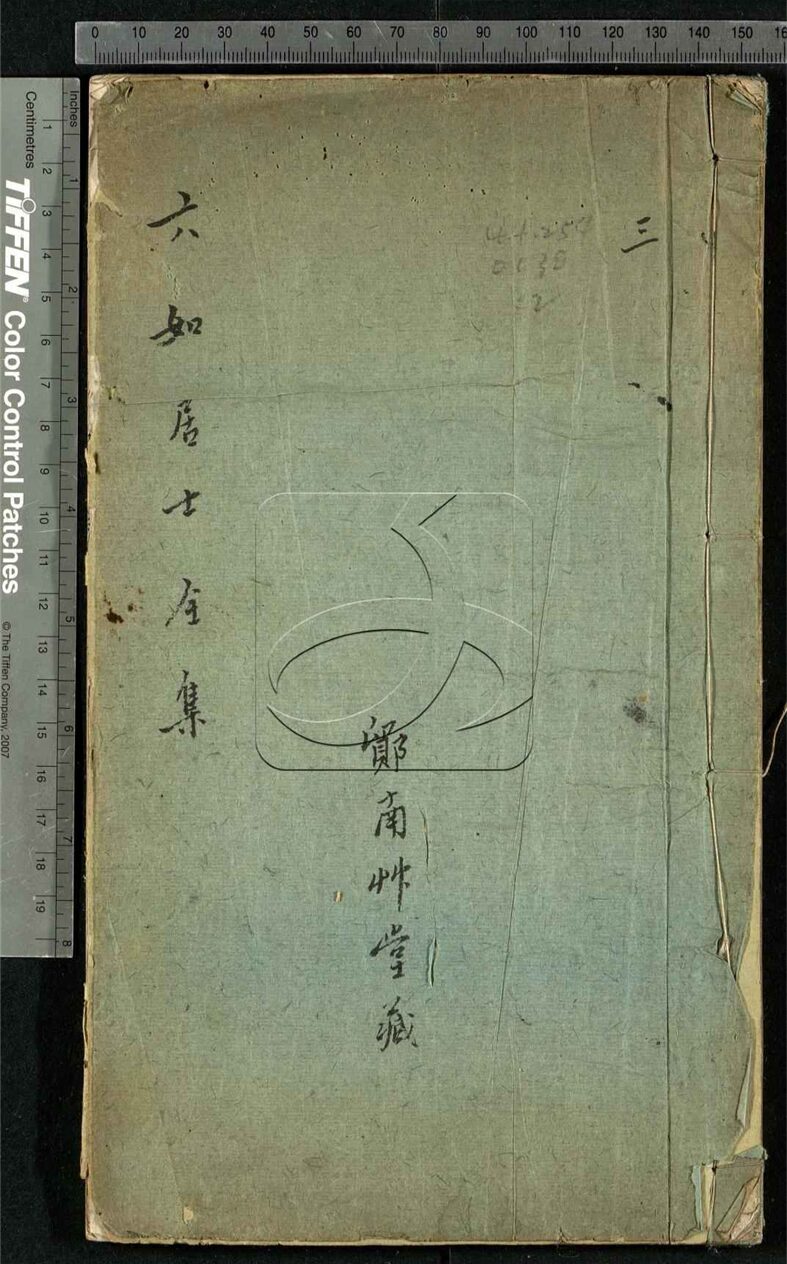 0 10 20 30 40 50 60 70 80 90 100 110 120 130 140 150 16
Inches
Centimetres
1 2 3 4 5 6 7 8 9 10 11 12 13 14 15 16 17 18 19
1 2 3 4 5 6 7 8
TIFFEN® Color Control Patches
© The Tiffen Company, 2007
三
南艸堂藏
六如居士全集